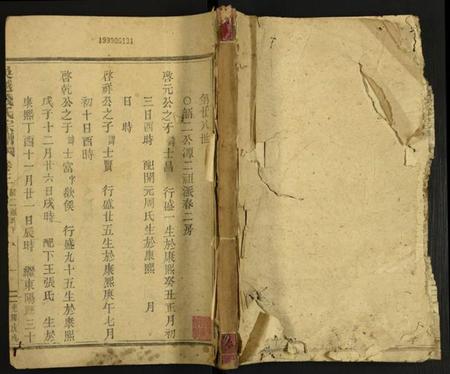 199306131
第廿八世
〇福二公潭二祖派春二房
啓元公之子諱士昌 行盛一生於康熙癸丑正月初
三日酉時 配開元周氏生於康熙 月
日 時
啓祥公之子諱士賢 行盛廿五生於康熙庚午七月
初十日酉時
啓乾公之子諱士富字 侯 行盛九十五生於康熙
戊子十二月廿六日戌時 配下王張氏 生於
康熙丁酉十一月廿一日辰時 繼東陽 三十